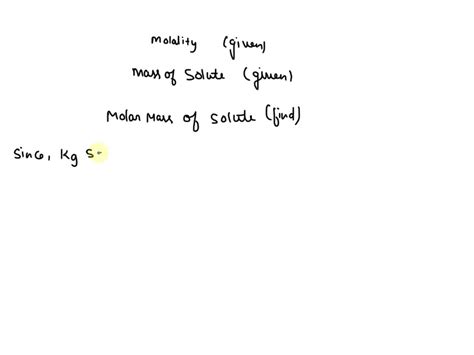 Molality (given)
Mass of Solute (given)
Molar Mass of Solute (find)
Since, Kg S